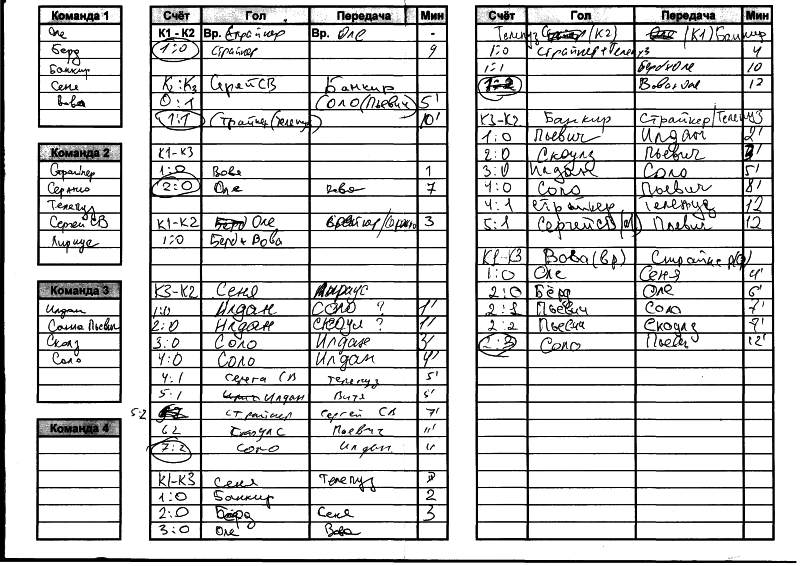 Команда 1
Оле
Берд
Банкир
Сеня
Вова
Команда 2
Страйкер
Сержио
Телепуз
Сергей СВ
Команда 3
Илдан
Саша Пьевич
Скоулз
Соло
Команда 4
Счёт Гол Передача Мин
К1-К2 Вр. Страйкер Вр. Оле -
1:0 Страйкер 9
К2:К3 Сергей СВ Банкир
0:1 Соло (Пьевич) 5'
1:1 Страйкер (Телепуз) 10'
К1-К3
1:0 Вова 1
2:0 Оле Вова 7
К1-К2 Оле Страйкер/Сержио 3
1:0 Берд + Вова
К3-К2 Сеня
1:0 Илдан Соло ? 1'
2:0 Илдан Скоул ? 1'
3:0 Соло Илдан 3'
4:0 Соло Илдан 4'
4:1 Серега СВ Телепуз 5'
5:1 Илдан Витя 5'
5:2 Страйкер Сергей СВ 7'
6:2 Скоулс Пьевич 11'
7:2 Соло Илдан 11
К1-К3 Сеня Телепуз
1:0 Банкир 2
2:0 Берд Сеня 3
3:0 Оле Вова
Счёт Гол Передача Мин
Телепуз (К2) (К1) Банкир
1:0 Страйкер + Телепуз 4
1:1 Берд + Оле 10
1:2 Вова + Оле 12
К3-К2 Банкир Страйкер/Телепуз
1:0 Пьевич Илдан 2'
2:0 Скоулз Пьевич
3:0 Илдан Соло 5'
4:0 Соло Пьевич 8'
4:1 Страйкер Телепуз 12
5:1 Сергей СВ Пьевич 12
К1-К3 Вова (вр) Страйкер (вр)
1:0 Оле Сеня 4'
2:0 Бёрд Оле 6'
2:1 Пьевич Соло 7'
2:2 Пьевич Скоулз 9'
2:3 Соло Пьевич 12'